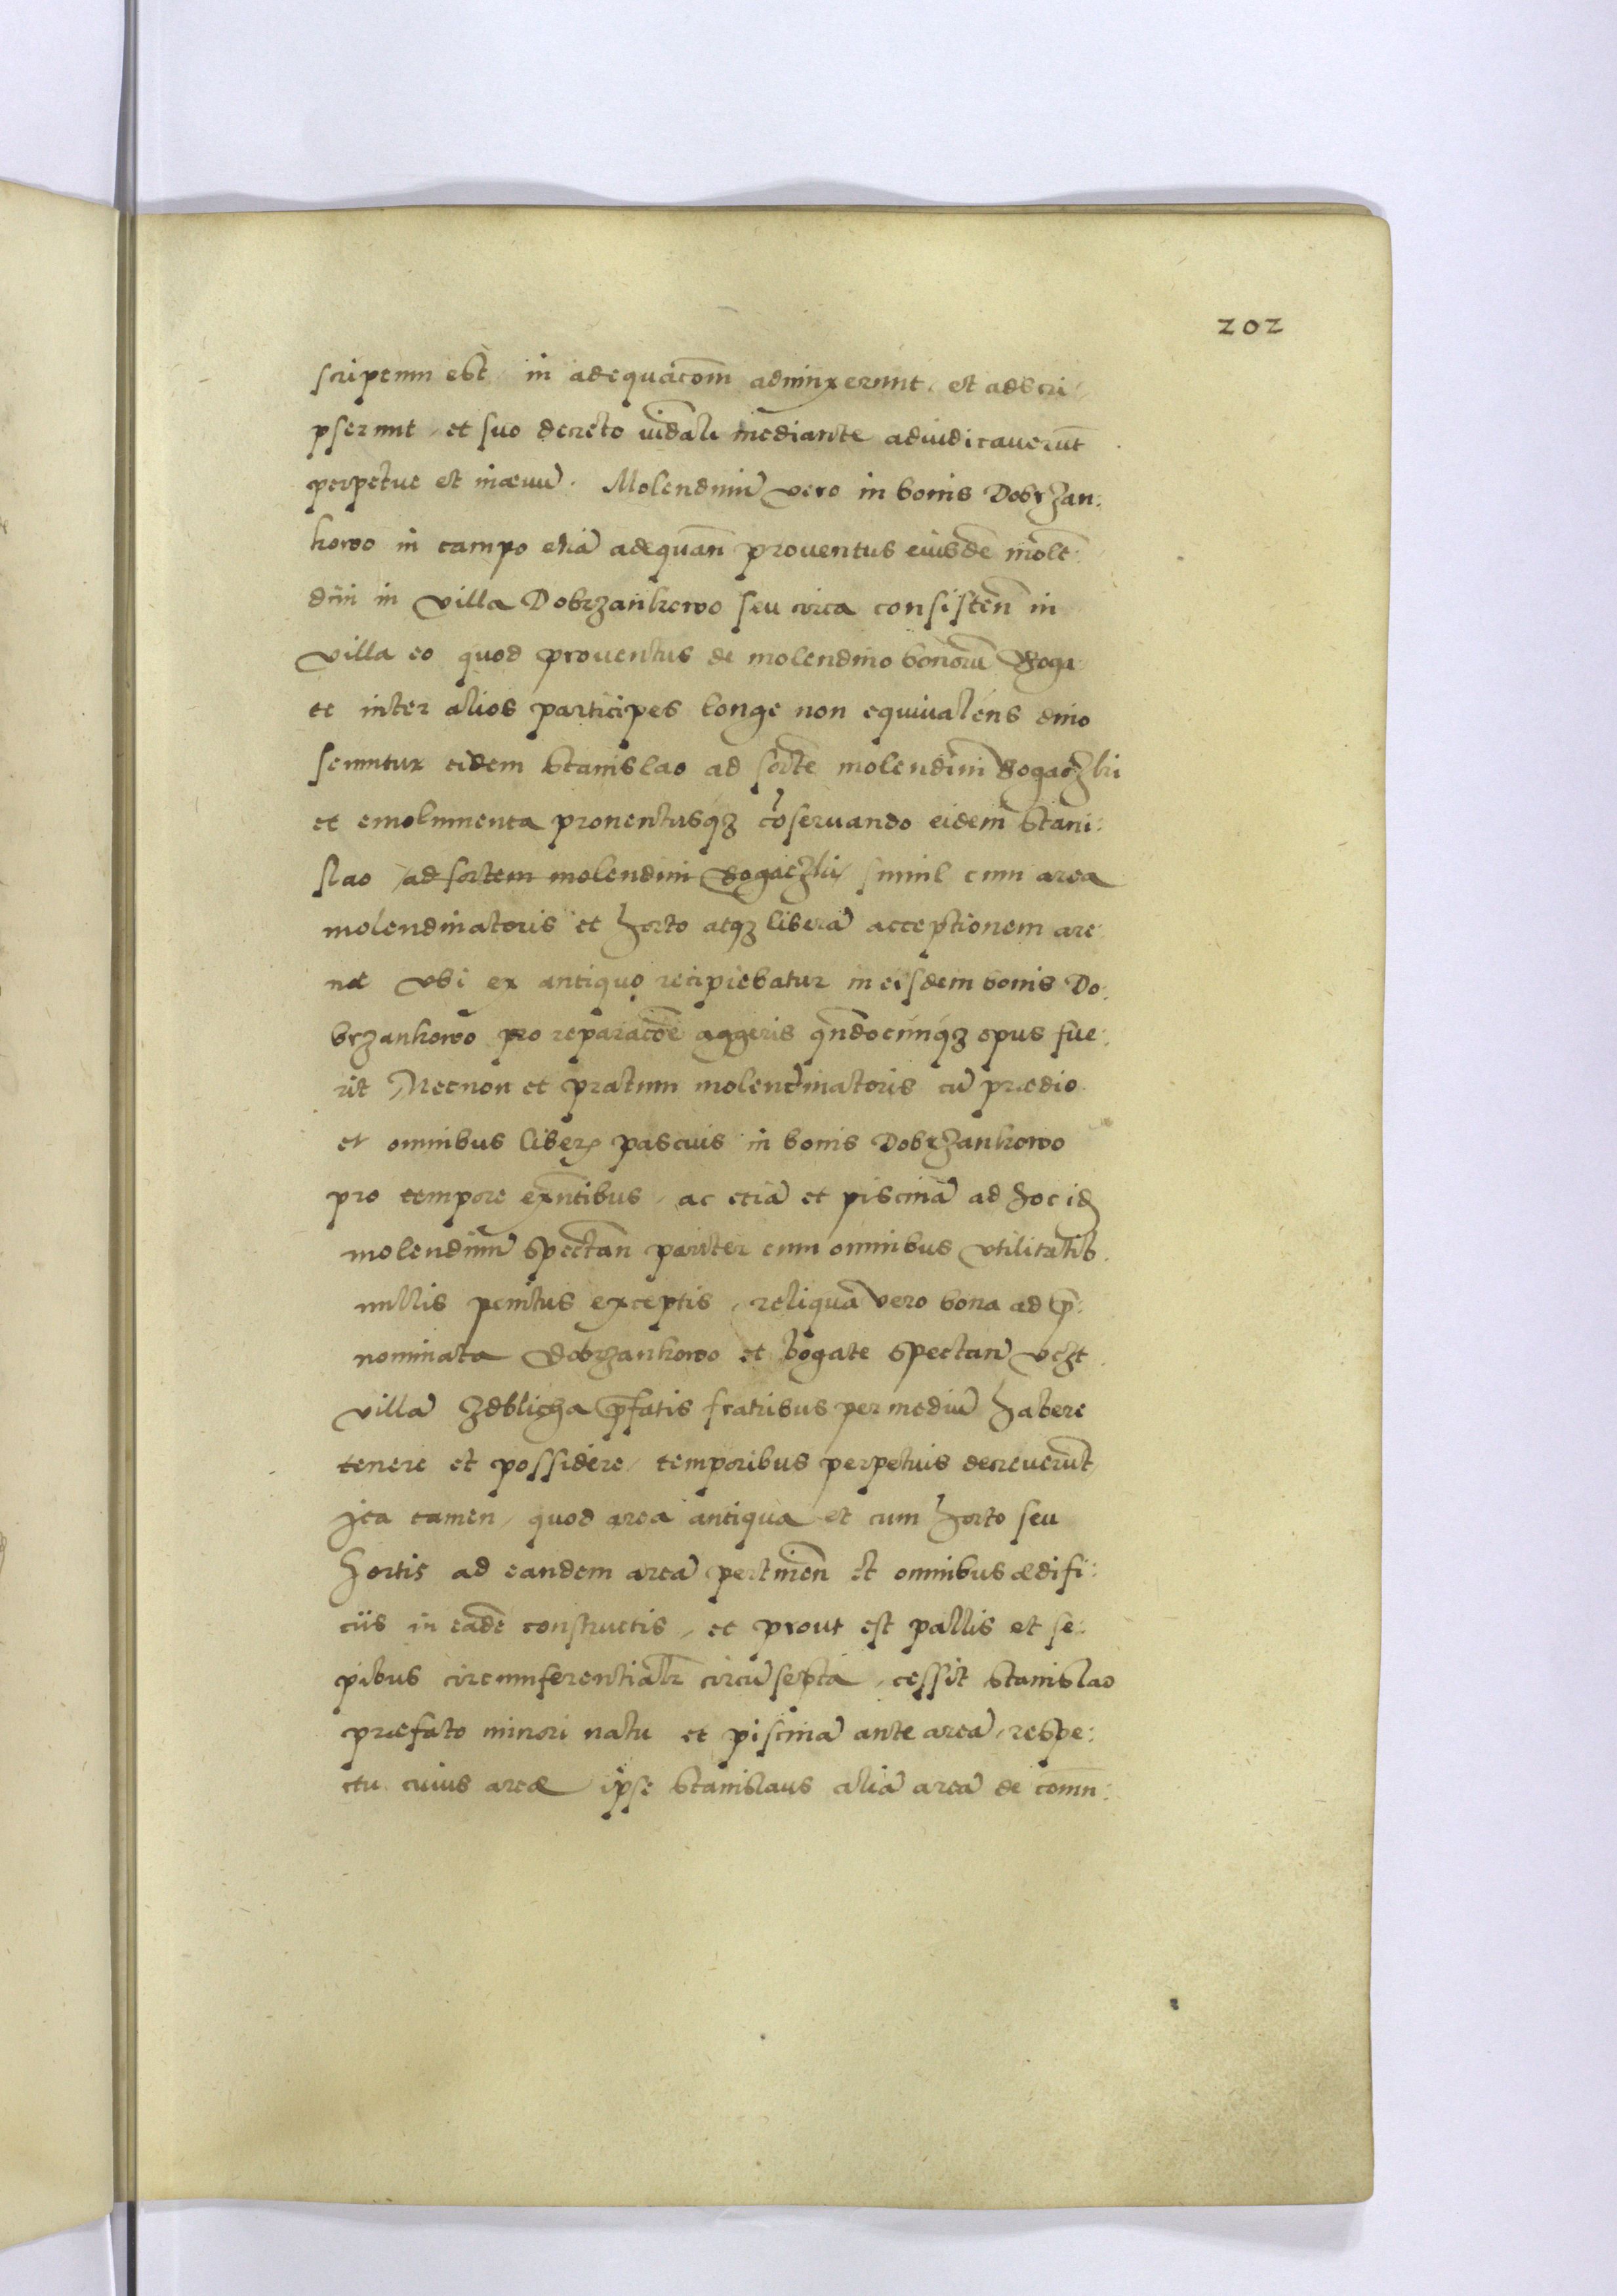 202
scripcum est in adequacōm adiunxerunt, et adscri
pserunt, et suo decreto mediante adiudicaverūt
perpetue et inævū. Molendinū vero in bonis Dobrzan:
kowo in campo etiā adequan̄ proventus eiusdē mole:
dini in villa Dobrzankowo seu circa consisten̄ in
villa eo quod proventus de molendino bonorū Boga
te inter alios participes longe non equivalens dino
scuntur eidem Stanislao ad sortē molendini Bogaczki
et emolumenta proventusq3 cōservando eidem Stani:
slao ad sortem molendini Bogaczki simul cum area
molendinatoris et horto atq3 liberā acceptionem are
næ vbi ex antiquo recipiebatur in eisdem bonis Do:
brzankowo pro reparacōe aggeris qn̄docunq3 opus fue:
rit Necnon et pratum molendinatoris cū prædio
et omnibus liber pascuis in bonis Dobrzankowo
pro tempore exn̄tibus, ac etiā et piscinā ad hoc id
molendinū spectan̄ pariter cum omnibus vtilitatib
nullis penitus exceptis, reliqua vero bona ad p̄:
nominata Dobrzankowo et bogate spectan̄ vczt
villā Zdblicza p̄fatis fratribus per mediū habere
tenere et possidere, temporibus perpetuis decreverūt
Ita tamen, quod area antiqua et cum horto seu
hortis ad eandem areā pertinen̄ et omnibus ædifi:
ciis in eadē constructis, et prout est pallis et se:
pibus circumferentialr̄ circūsepta, cessit Stanislao
præfato minori natu et piscinā ante areā, respe:
ctu cuius areæ ipse Stanislaus aliā areā de comn: